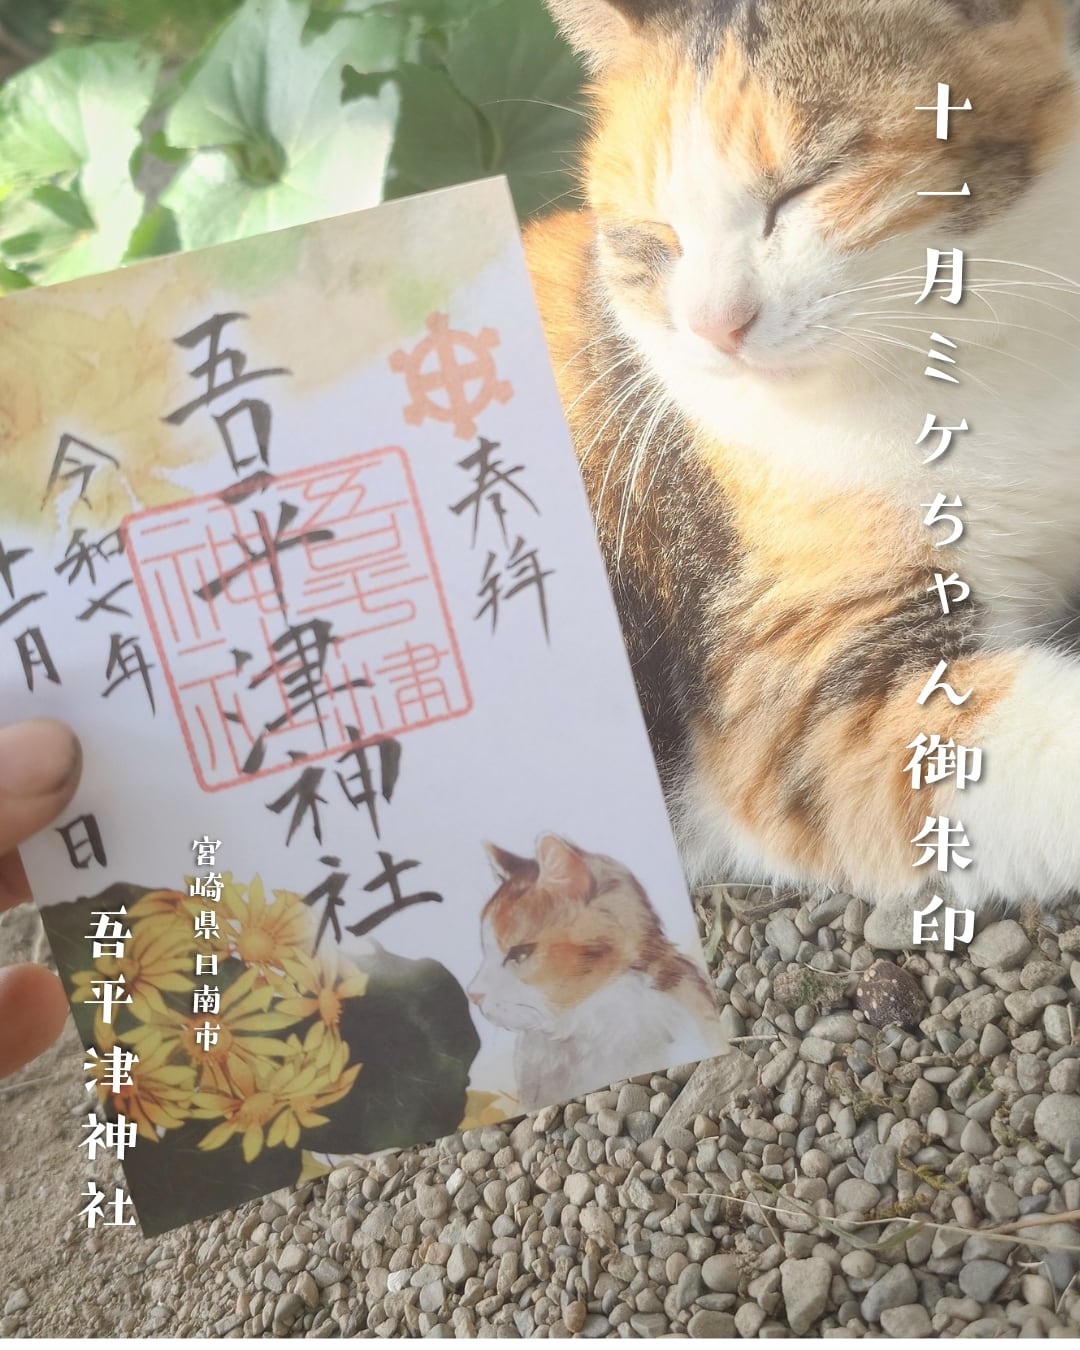 十一月ミケちゃん御朱印
奉拝
吾平津神社
令和七年
十一月
日
宮崎県日南市
吾平津神社